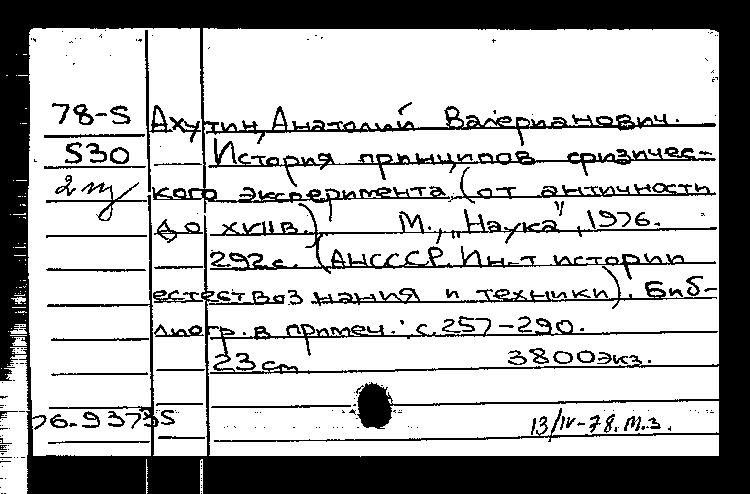 78-S Ахутин, Анатолий Валерианович.
S30 История принципов физичес-
2 кого эксперимента (от античности
до XVII в.) М., „Наука", 1976.
292 с. (АНСССР. Ин-т истории
естествознания и техники). Биб-
лиогр. в примеч.: с. 257-290.
23 cm 3800 экз.
76-9373S 13/IV-78. М.З.